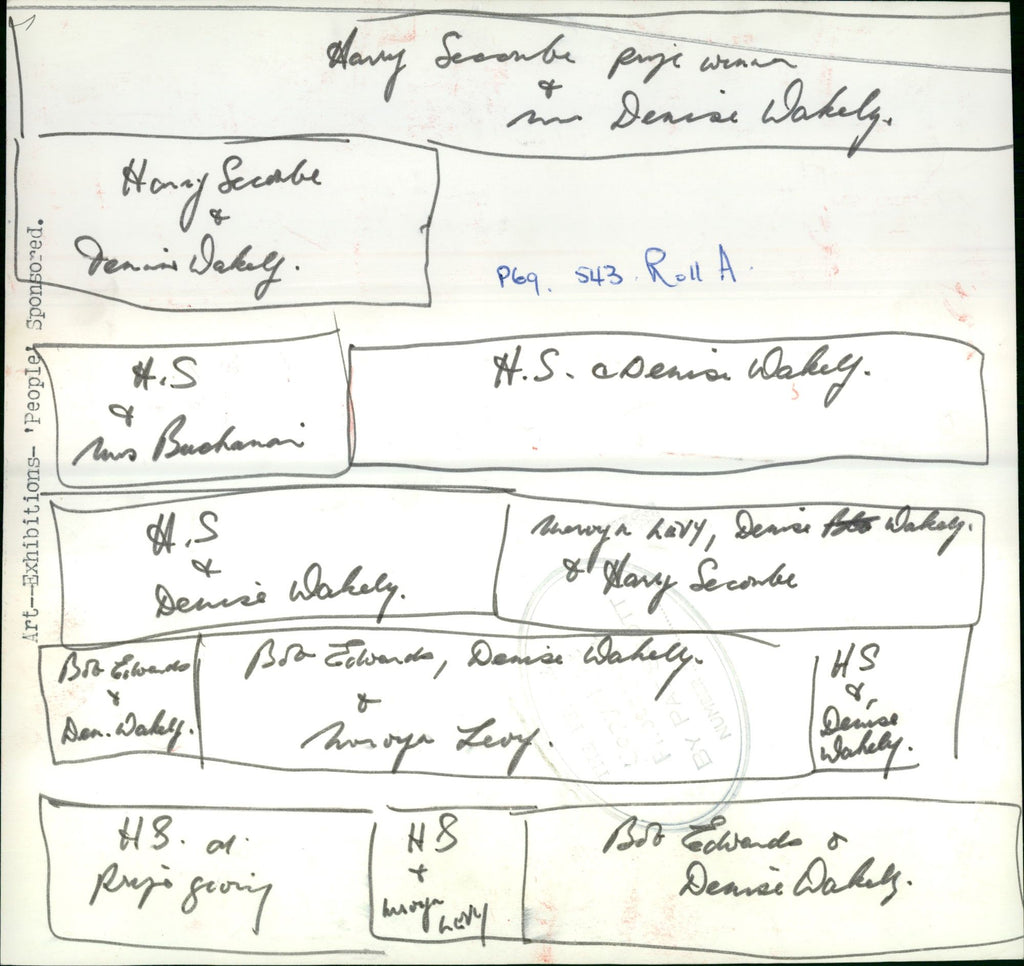 Harry Secombe prize winner
&
Mrs Denise Wakely.
Harry Secombe
&
Denise Wakely.
P69. 543. Roll A.
Art--Exhibitions- 'People' Sponsored.
H.S
&
Mrs Buchanan
H.S. & Denise Wakely.
H.S
&
Denise Wakely.
Mervyn Levy, Denise Wakely.
& Harry Secombe
Bob Edwards
&
Den. Wakely.
Bob Edwards, Denise Wakely.
&
Mervyn Levy.
HS
&
Denise
Wakely.
HS. at
prize giving
HS
+
Mervyn
Levy
Bob Edwards &
Denise Wakely.
BY PA
NUMB